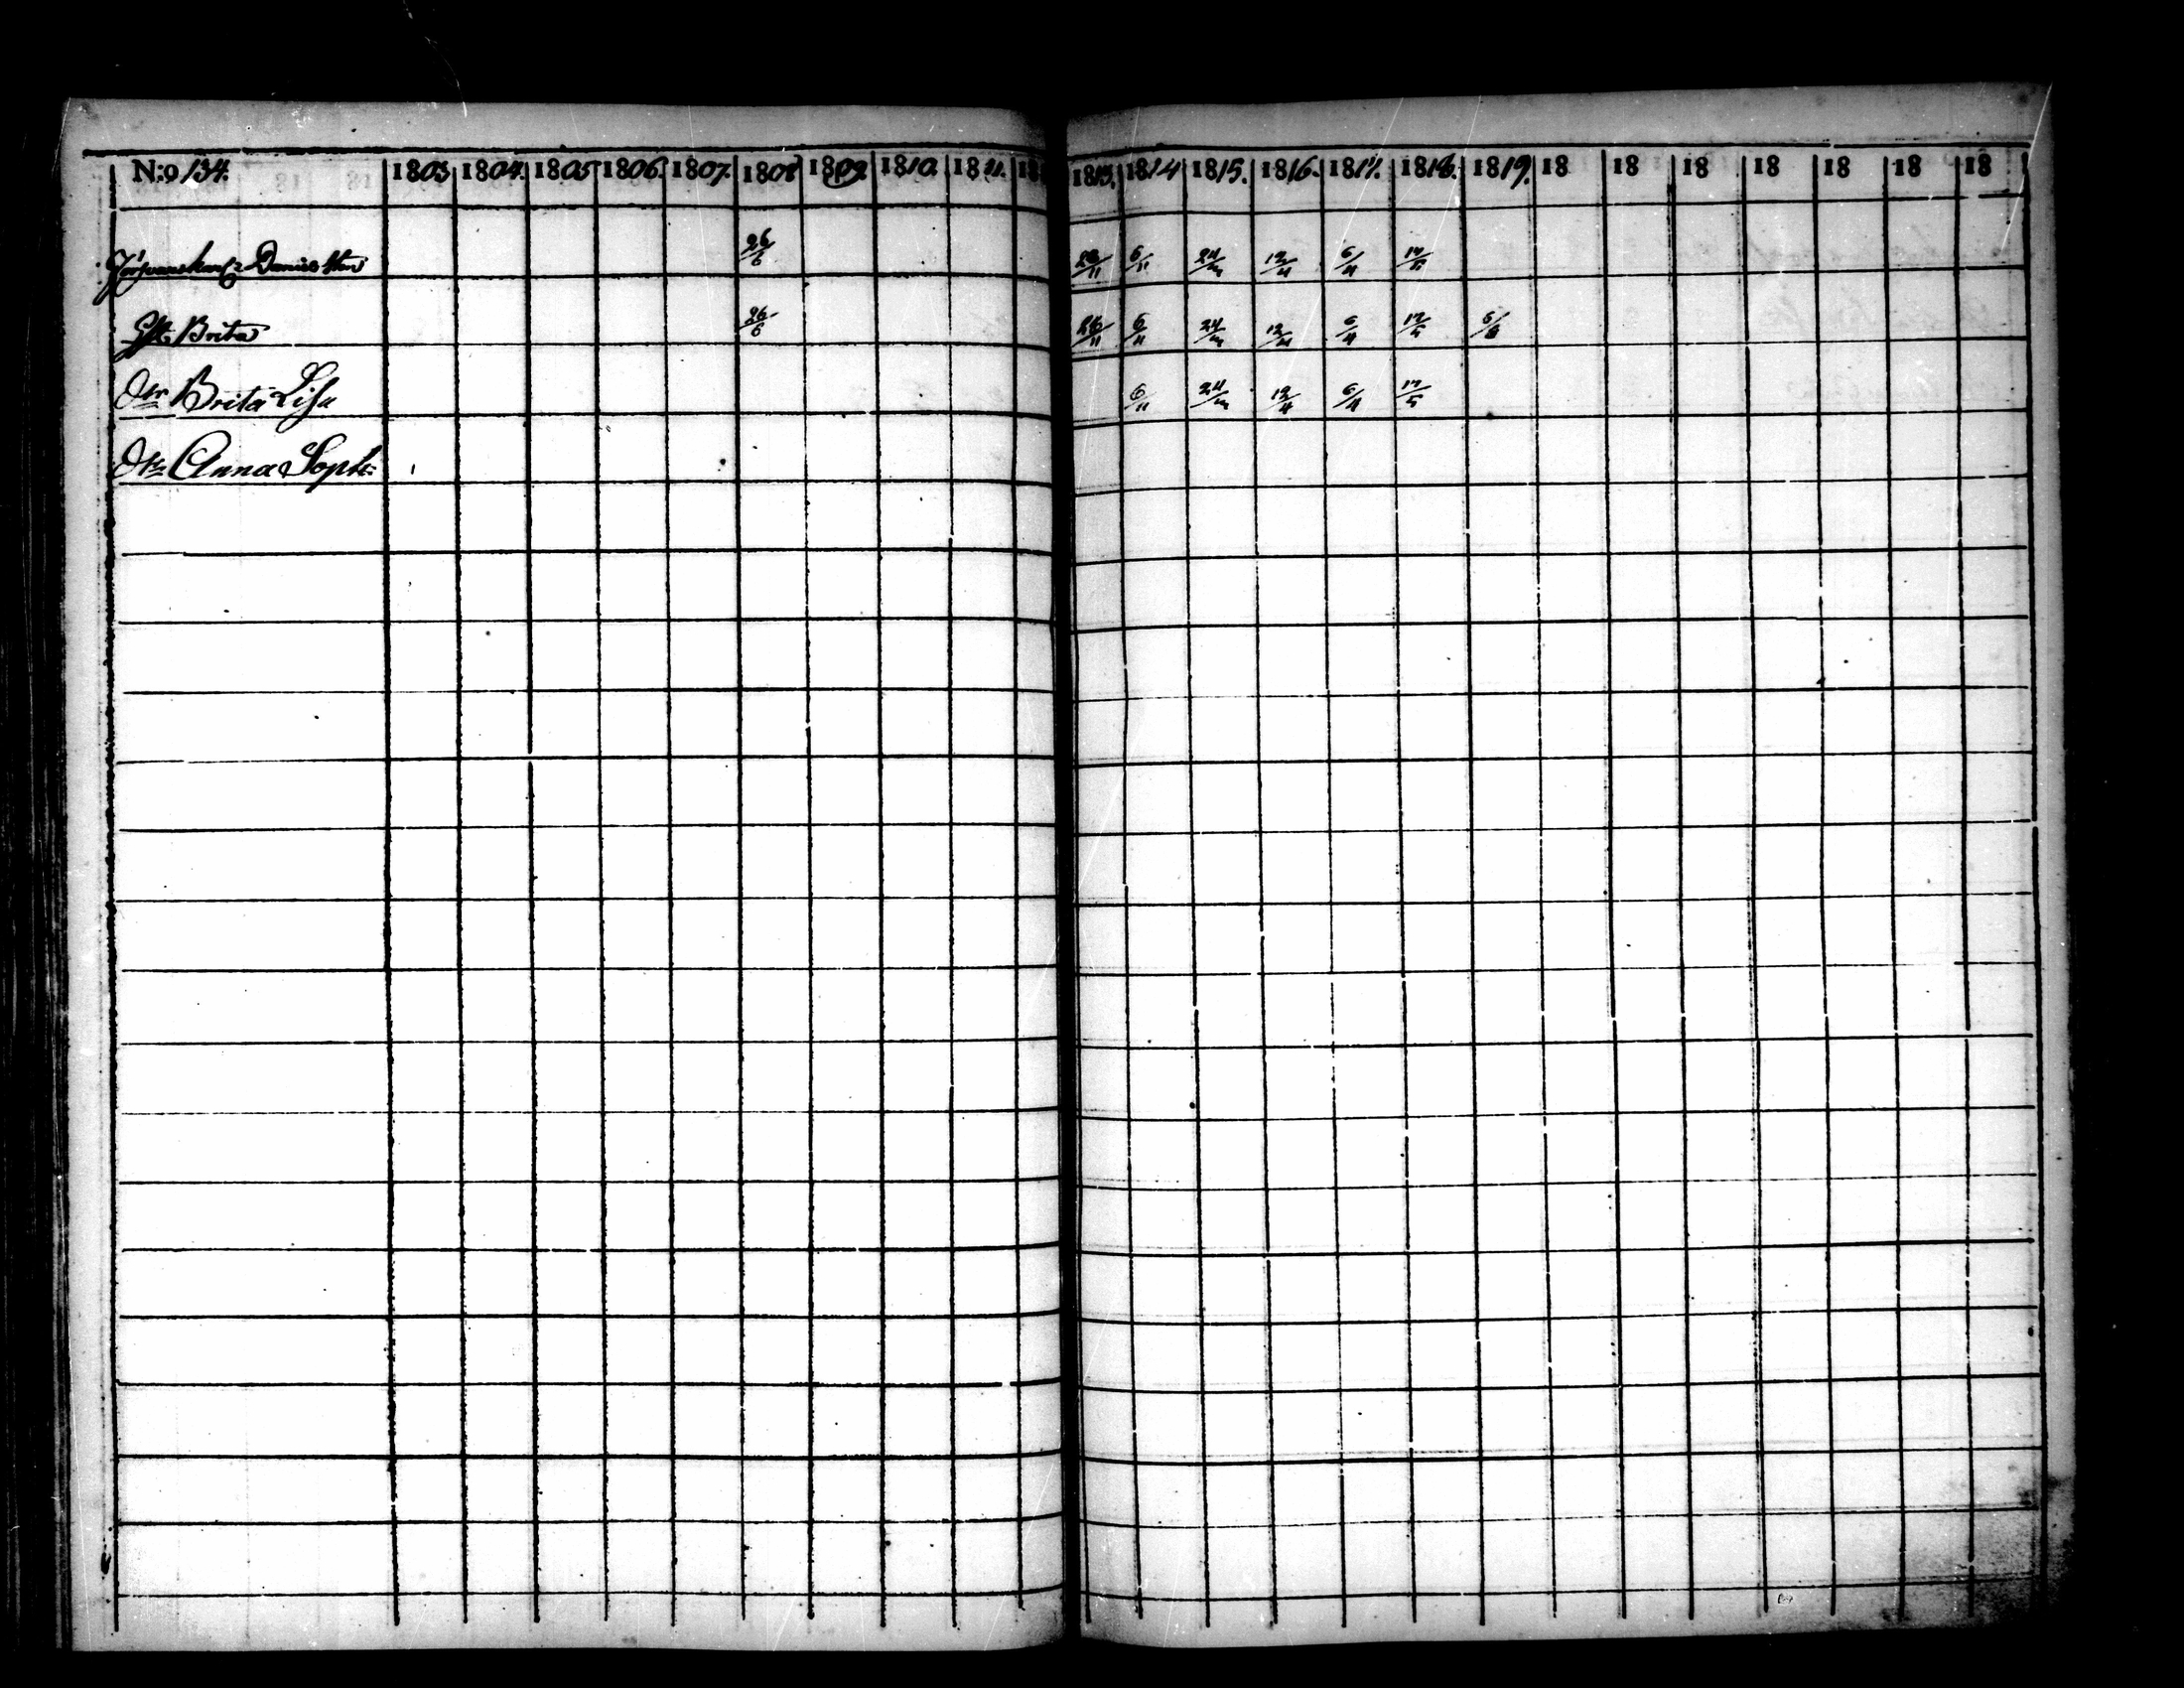 N:o 134. 1803 1804. 1805 1806. 1807. 1808 1809. 1810. 1811. 18 1813. 1814 1815. 1816. 1817. 1818. 1819. 18 18 18 18 18 18 18
26/6 26/11 6/11 24/ 12/4 6/4 17/5
Brita 26/6 26/11 6/11 24/ 12/4 6/4 17/5 6/8
Dtr Brita Lisa 6/11 24/ 12/4 6/4 17/5
Dtr Anna Soph: